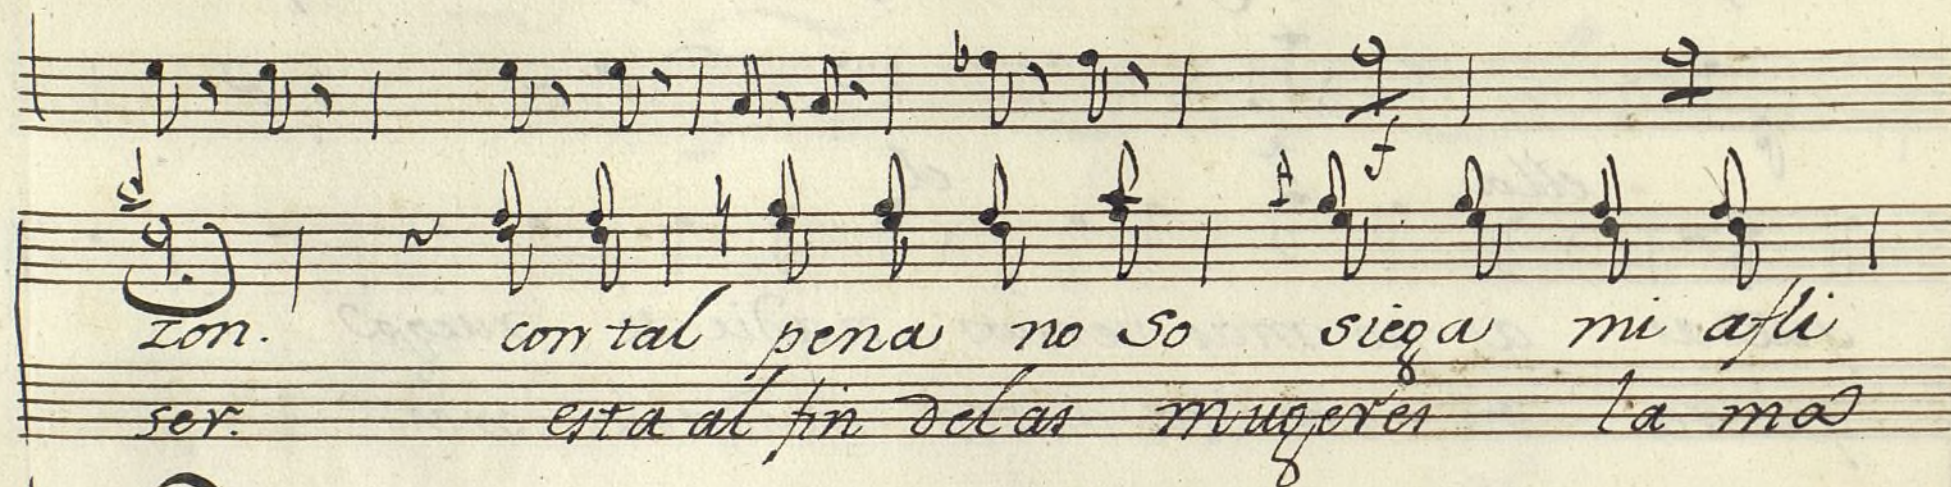 f
zon. con tal pena no so siega mi afli
ser. esta al fin delas mugeres la mas